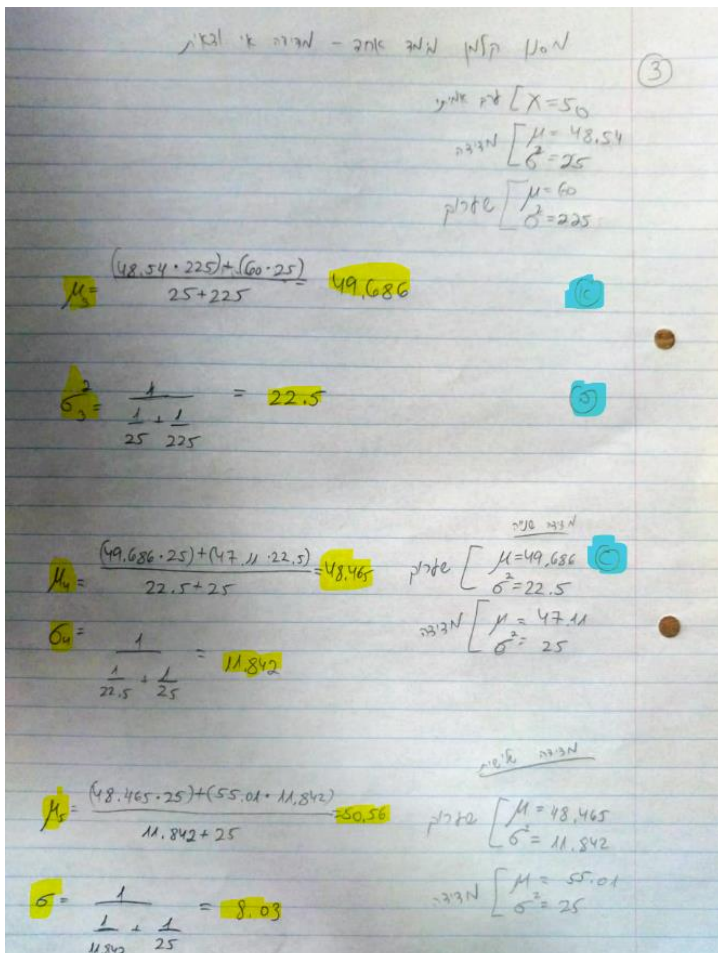 מסנן קלמן מימד אחד - מדידה אי ודאית
3
ערך אמיתי [ X=50
מדידה [ μ=48.54
σ²=25
שערוך [ μ=60
σ²=225
μ₃= (48.54·225)+(60·25) / 25+225 = 49,686
σ₃²= 1 / 1/25 + 1/225 = 22.5
מדידה שנייה
μ₄= (49.686·25)+(47.11·22.5) / 22.5+25 =48,465 שערוך [ μ=49,686
σ²=22.5
σ₄= 1 / 1/22.5 + 1/25 = 11.842 מדידה [ μ=47.11
σ²=25
מדידה שלישית
μ₅= (48.465·25)+(55.01·11,842) / 11.842+25 =50,56 שערוך [ μ=48,465
σ²=11.842
σ= 1 / 1/11.842 + 1/25 = 8.03 מדידה [ μ=55.01
σ²=25